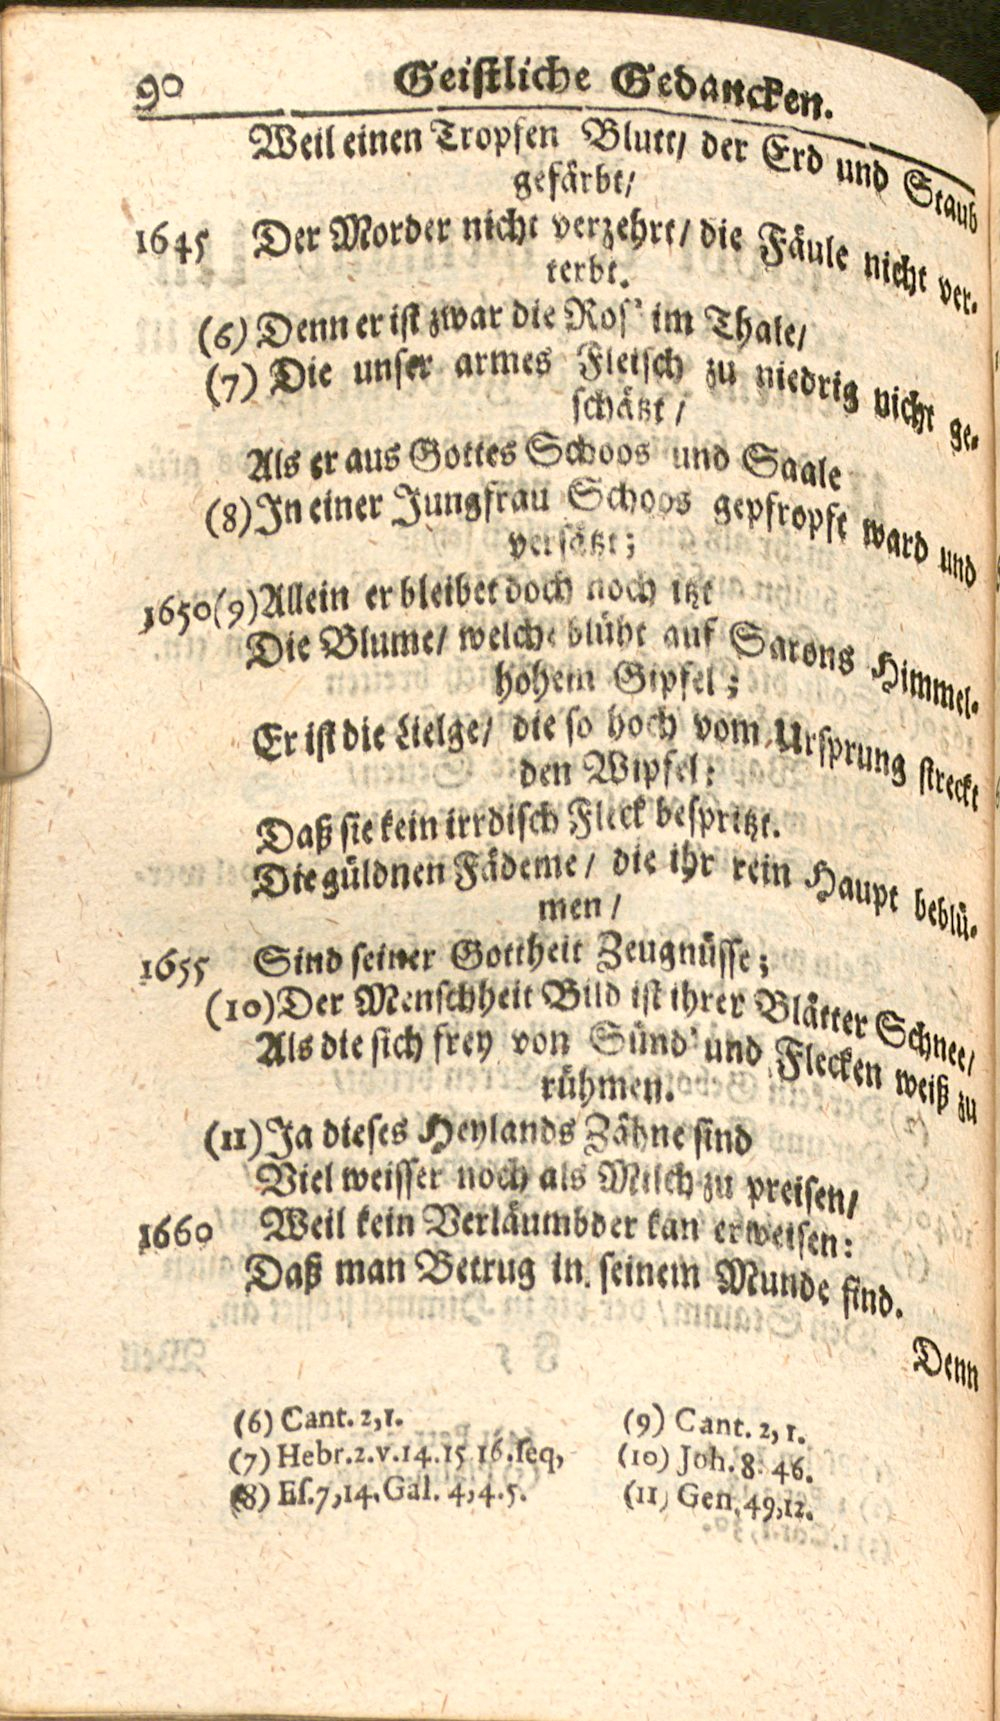 90 Geistliche Gedancken.
Weil einen Tropfen Blutt/ der Erd und Staub
gefärbt/
1645 Der Morder nicht verzehrt/ die Fäule nicht ver-
terbt.
(6) Denn er ist zwar die Ros' im Thale/
(7) Die unser armes Fleisch zu niedrig nicht ge-
schätzt/
Als er aus Gottes Schoos und Saale
(8) In einer Jungfrau Schoos gepfropft ward und
versätzt;
1650 (9) Allein er bleibet doch noch itzt
Die Blume/ welche blüht auf Sarons Himmel-
hohem Gipfel;
Er ist die Lielge/ die so hoch vom Ursprung streckt
den Wipfel:
Daß sie kein irrdisch Fleck bespritzt.
Die güldnen Fädeme/ die ihr rein Haupt beblü-
men/
1655 Sind seiner Gottheit Zeugnüsse;
(10) Der Menschheit Bild ist ihrer Blätter Schnee/
Als die sich frey von Sünd' und Flecken weiß zu
rühmen.
(11) Ja dieses Heylands Zähne sind
Viel weisser noch als Milch zu preisen/
1660 Weil kein Verläumbder kan erweisen:
Daß man Betrug in seinem Munde find.
Denn
(6) Cant. 2,1.
(7) Hebr. 2. v. 14. 15 16. seq,
(8) Es. 7,14. Gal. 4,4. 5.
(9) Cant. 2, 1.
(10) Joh. 8. 46.
(11) Gen. 49,12.